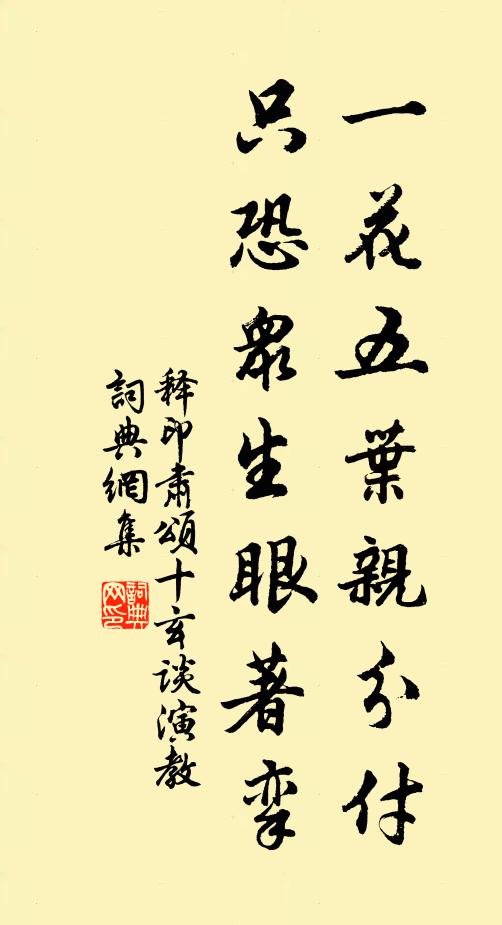 一花五葉親分付
只恐衆生眼著挛
释印肃頌十玄谈演教
詞典網集
詞典网印